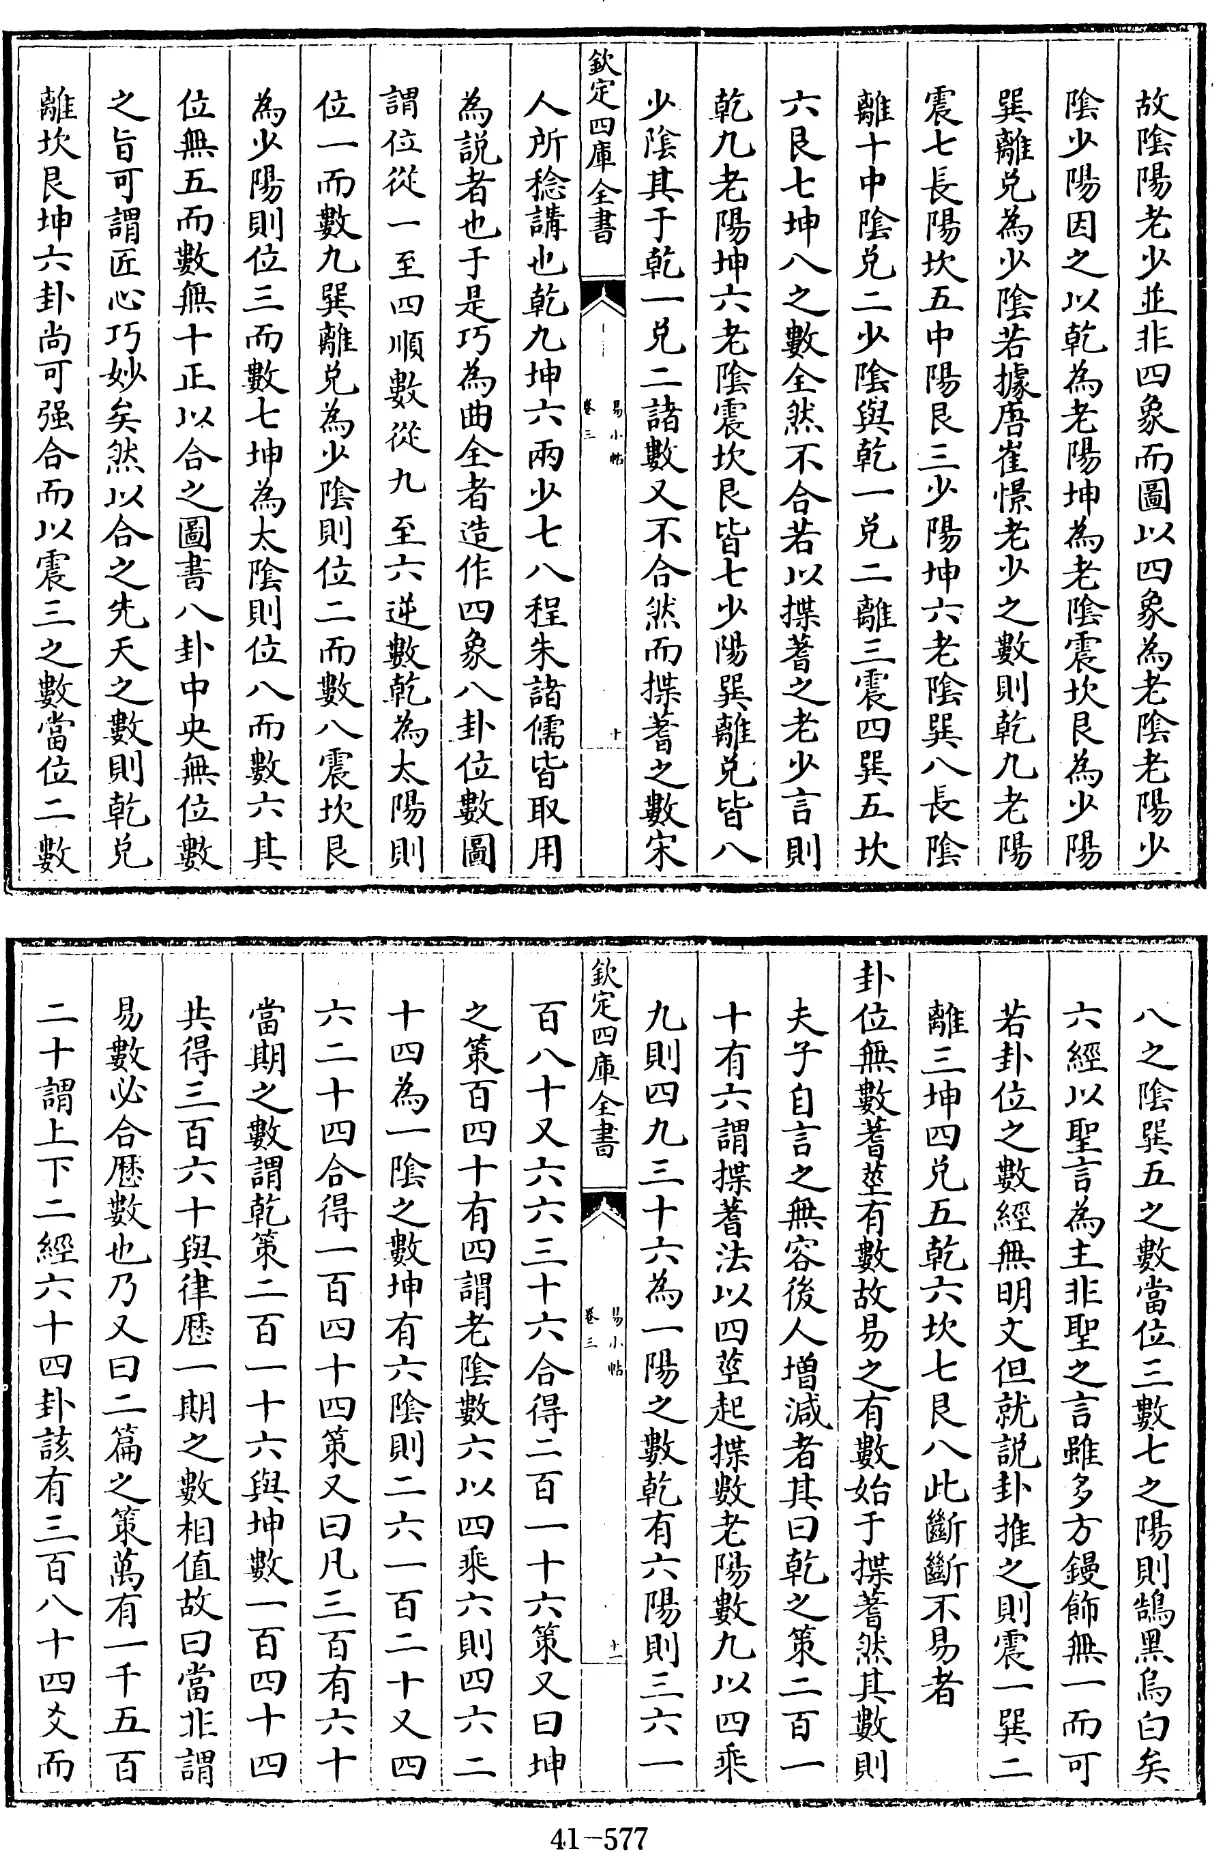 故陰陽老少並非四象而圖以四象為老陰老陽少
陰少陽因之以乾為老陽坤為老陰震坎艮為少陽
巽離兌為少陰若據唐崔憬老少之數則乾九老陽
震七長陽坎五中陽艮三少陽坤六老陰巽八長陰
離十中陰兌二少陰與乾一兌二離三震四巽五坎
六艮七坤八之數全然不合若以揲蓍之老少言則
乾九老陽坤六老陰震坎艮皆七少陽巽離兌皆八
少陰其于乾一兌二諸數又不合然而揲蓍之數宋
欽定四庫全書
易小帖
卷三
十
人所稔講也乾九坤六兩少七八程朱諸儒皆取用
為說者也于是巧為曲全者造作四象八卦位數圖
謂位從一至四順數從九至六逆數乾為太陽則
位一而數九巽離兌為少陰則位二而數八震坎艮
為少陽則位三而數七坤為太陰則位八而數六其
位無五而數無十正以合之圖書八卦中央無位數
之旨可謂匠心巧妙矣然以合之先天之數則乾兌
離坎艮坤六卦尚可强合而以震三之數當位二數
八之陰巽五之數當位三數七之陽則鵠黑烏白矣
六經以聖言為主非聖之言雖多方鏝飾無一而可
若卦位之數經無明文但就說卦推之則震一巽二
離三坤四兌五乾六坎七艮八此斷斷不易者
卦位無數蓍莖有數故易之有數始于揲蓍然其數則
夫子自言之無容後人增減者其曰乾之策二百一
十有六謂揲蓍法以四莖起揲數老陽數九以四乘
九則四九三十六為一陽之數乾有六陽則三六一
欽定四庫全書
易小帖
卷三
十一
百八十又六六三十六合得二百一十六策又曰坤
之策百四十有四謂老陰數六以四乘六則四六二
十四為一陰之數坤有六陰則二六一百二十又四
六二十四合得一百四十四策又曰凡三百有六十
當期之數謂乾策二百一十六與坤數一百四十四
共得三百六十與律歷一期之數相值故曰當非謂
易數必合歷數也乃又曰二篇之策萬有一千五百
二十謂上下二經六十四卦該有三百八十四爻而
41-577